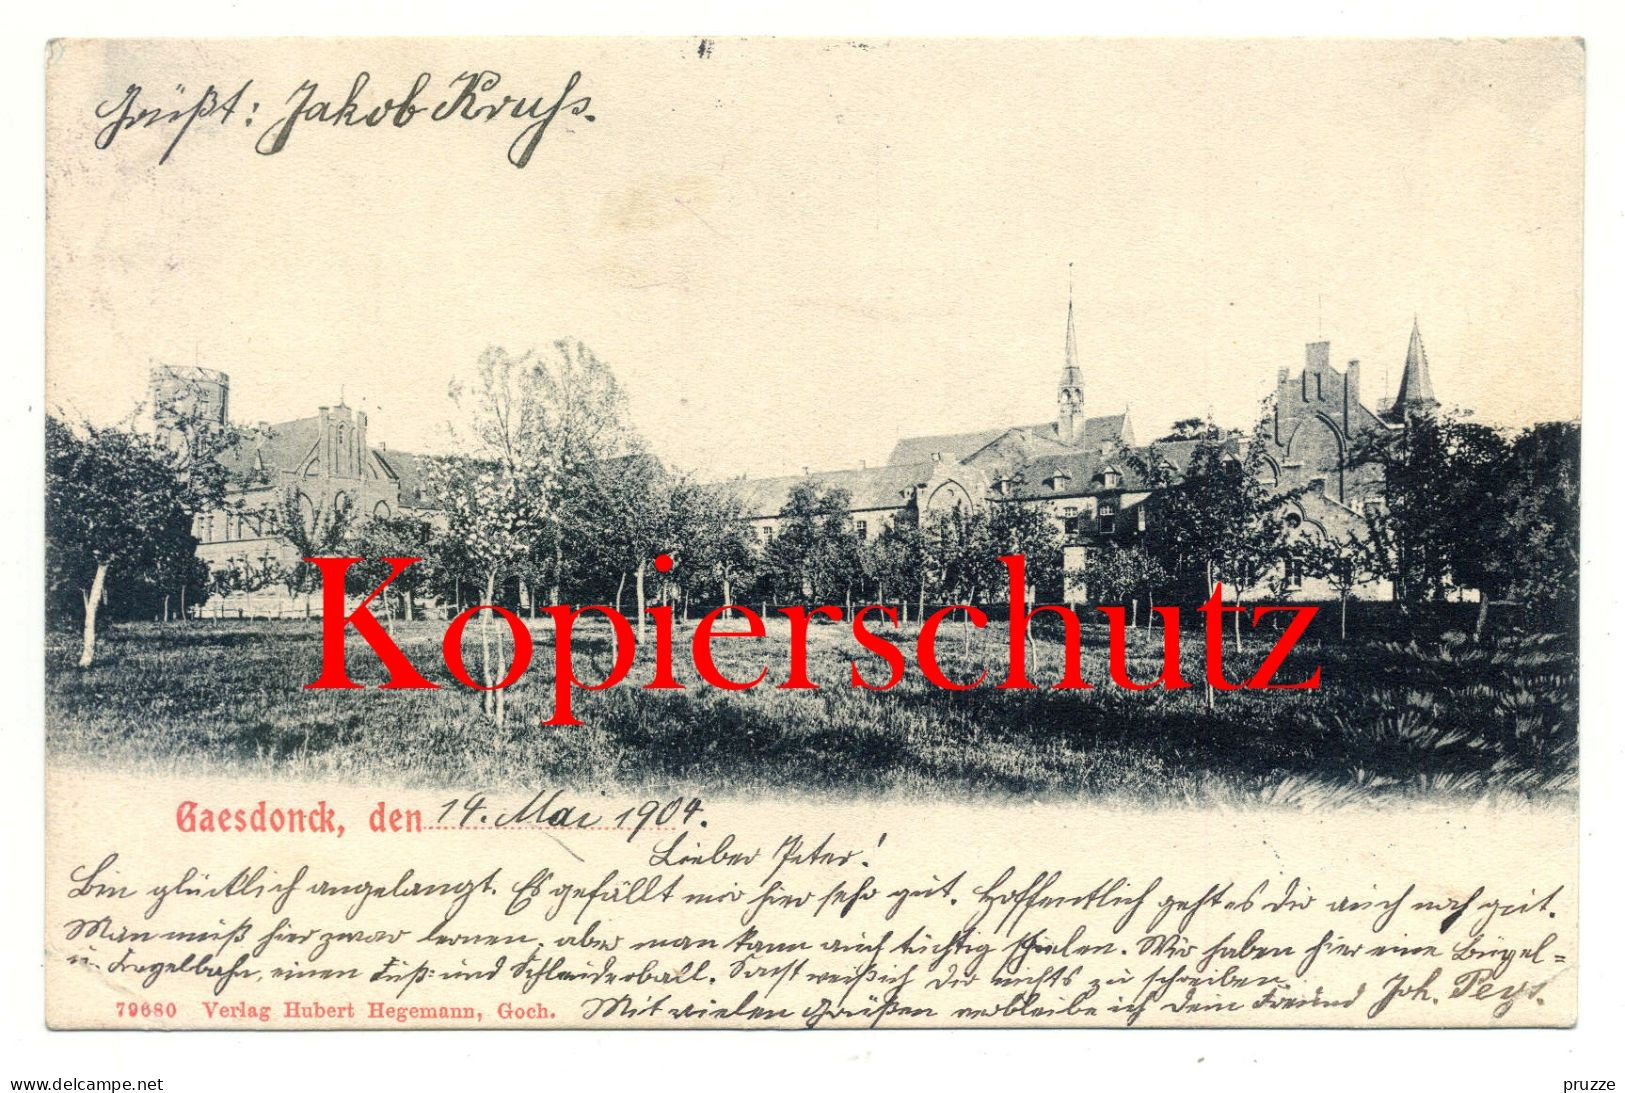 Grüßt: Jakob Kruss.
Kopierschutz
Gaesdonck, den 14. Mai 1904.
Lieber Peter!
Bin glücklich angelangt. Es gefällt mir hier sehr gut. Hoffentlich geht es Dir auch noch gut.
Man muß hier zwar lernen, aber man kann auch tüchtig spielen. Wir haben hier eine Bügel=
u. Kegelbahn, einen Fuß= und Schleuderball. Sonst weiß ich Dir nichts zu schreiben.
Mit vielen Grüßen verbleibe ich Dein Freund Joh. Peys.
79680 Verlag Hubert Hegemann, Goch.
www.delcampe.net
pruzze